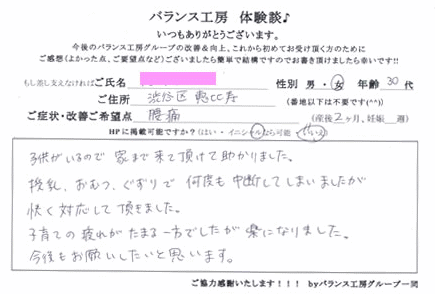 バランス工房 体験談♪
いつもありがとうございます。
今後のバランス工房グループの改善&向上、これから初めてお受け頂く方のために
ご感想(よかった点、ご要望点など)ございましたら簡単で結構ですのでお書き頂けましたら幸いです!!
もし差し支えなければご氏名 性別 男・女 年齢 30代
ご住所 渋谷区 恵比寿 (番地以下は不要です(^^))
ご症状・改善ご希望点 腰痛 (産後2ヶ月、妊娠 週)
HPに掲載可能ですか?(はい・イニシャルなら可能・いいえ)
子供がいるので 家まで来て頂けて助かりました。
授乳、おむつ、ぐずりで 何度も中断してしまいましたが
快く対応して頂きました。
子育ての疲れがたまる一方でしたが 楽になりました。
今後もお願いしたいと思います。
ご協力感謝いたします!!! byバランス工房グループ一同